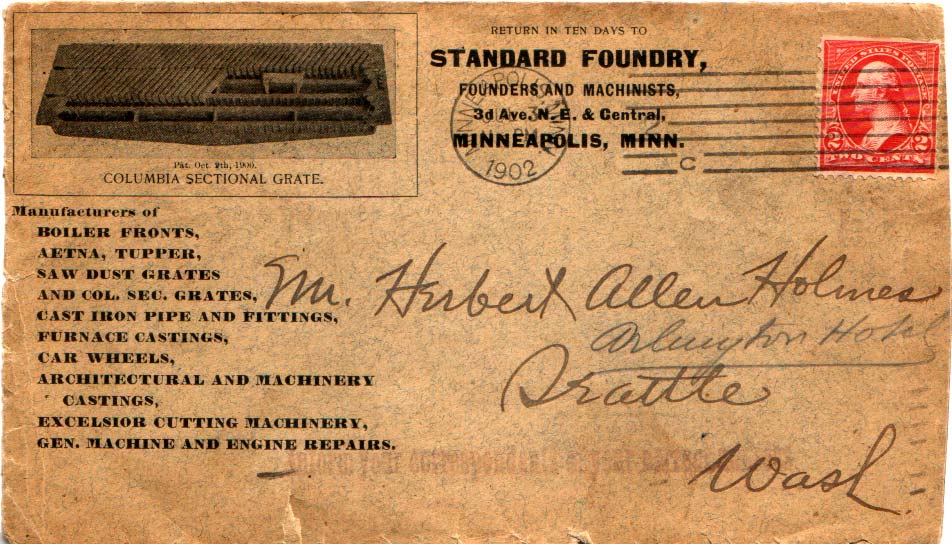 RETURN IN TEN DAYS TO
STANDARD FOUNDRY,
FOUNDERS AND MACHINISTS,
3d Ave. N. E. & Central,
MINNEAPOLIS, MINN.
MINNEAPOLIS MINN.
3
PM
1902
C
UNITED STATES POSTAGE
2 TWO CENTS 2
Pat. Oct. 9th, 1900.
COLUMBIA SECTIONAL GRATE.
Manufacturers of
BOILER FRONTS,
AETNA, TUPPER,
SAW DUST GRATES
AND COL. SEC. GRATES,
CAST IRON PIPE AND FITTINGS,
FURNACE CASTINGS,
CAR WHEELS,
ARCHITECTURAL AND MACHINERY
CASTINGS,
EXCELSIOR CUTTING MACHINERY,
GEN. MACHINE AND ENGINE REPAIRS.
Mr. Herbert Allen Holmes
Arlington Hotel
Seattle
Wash.